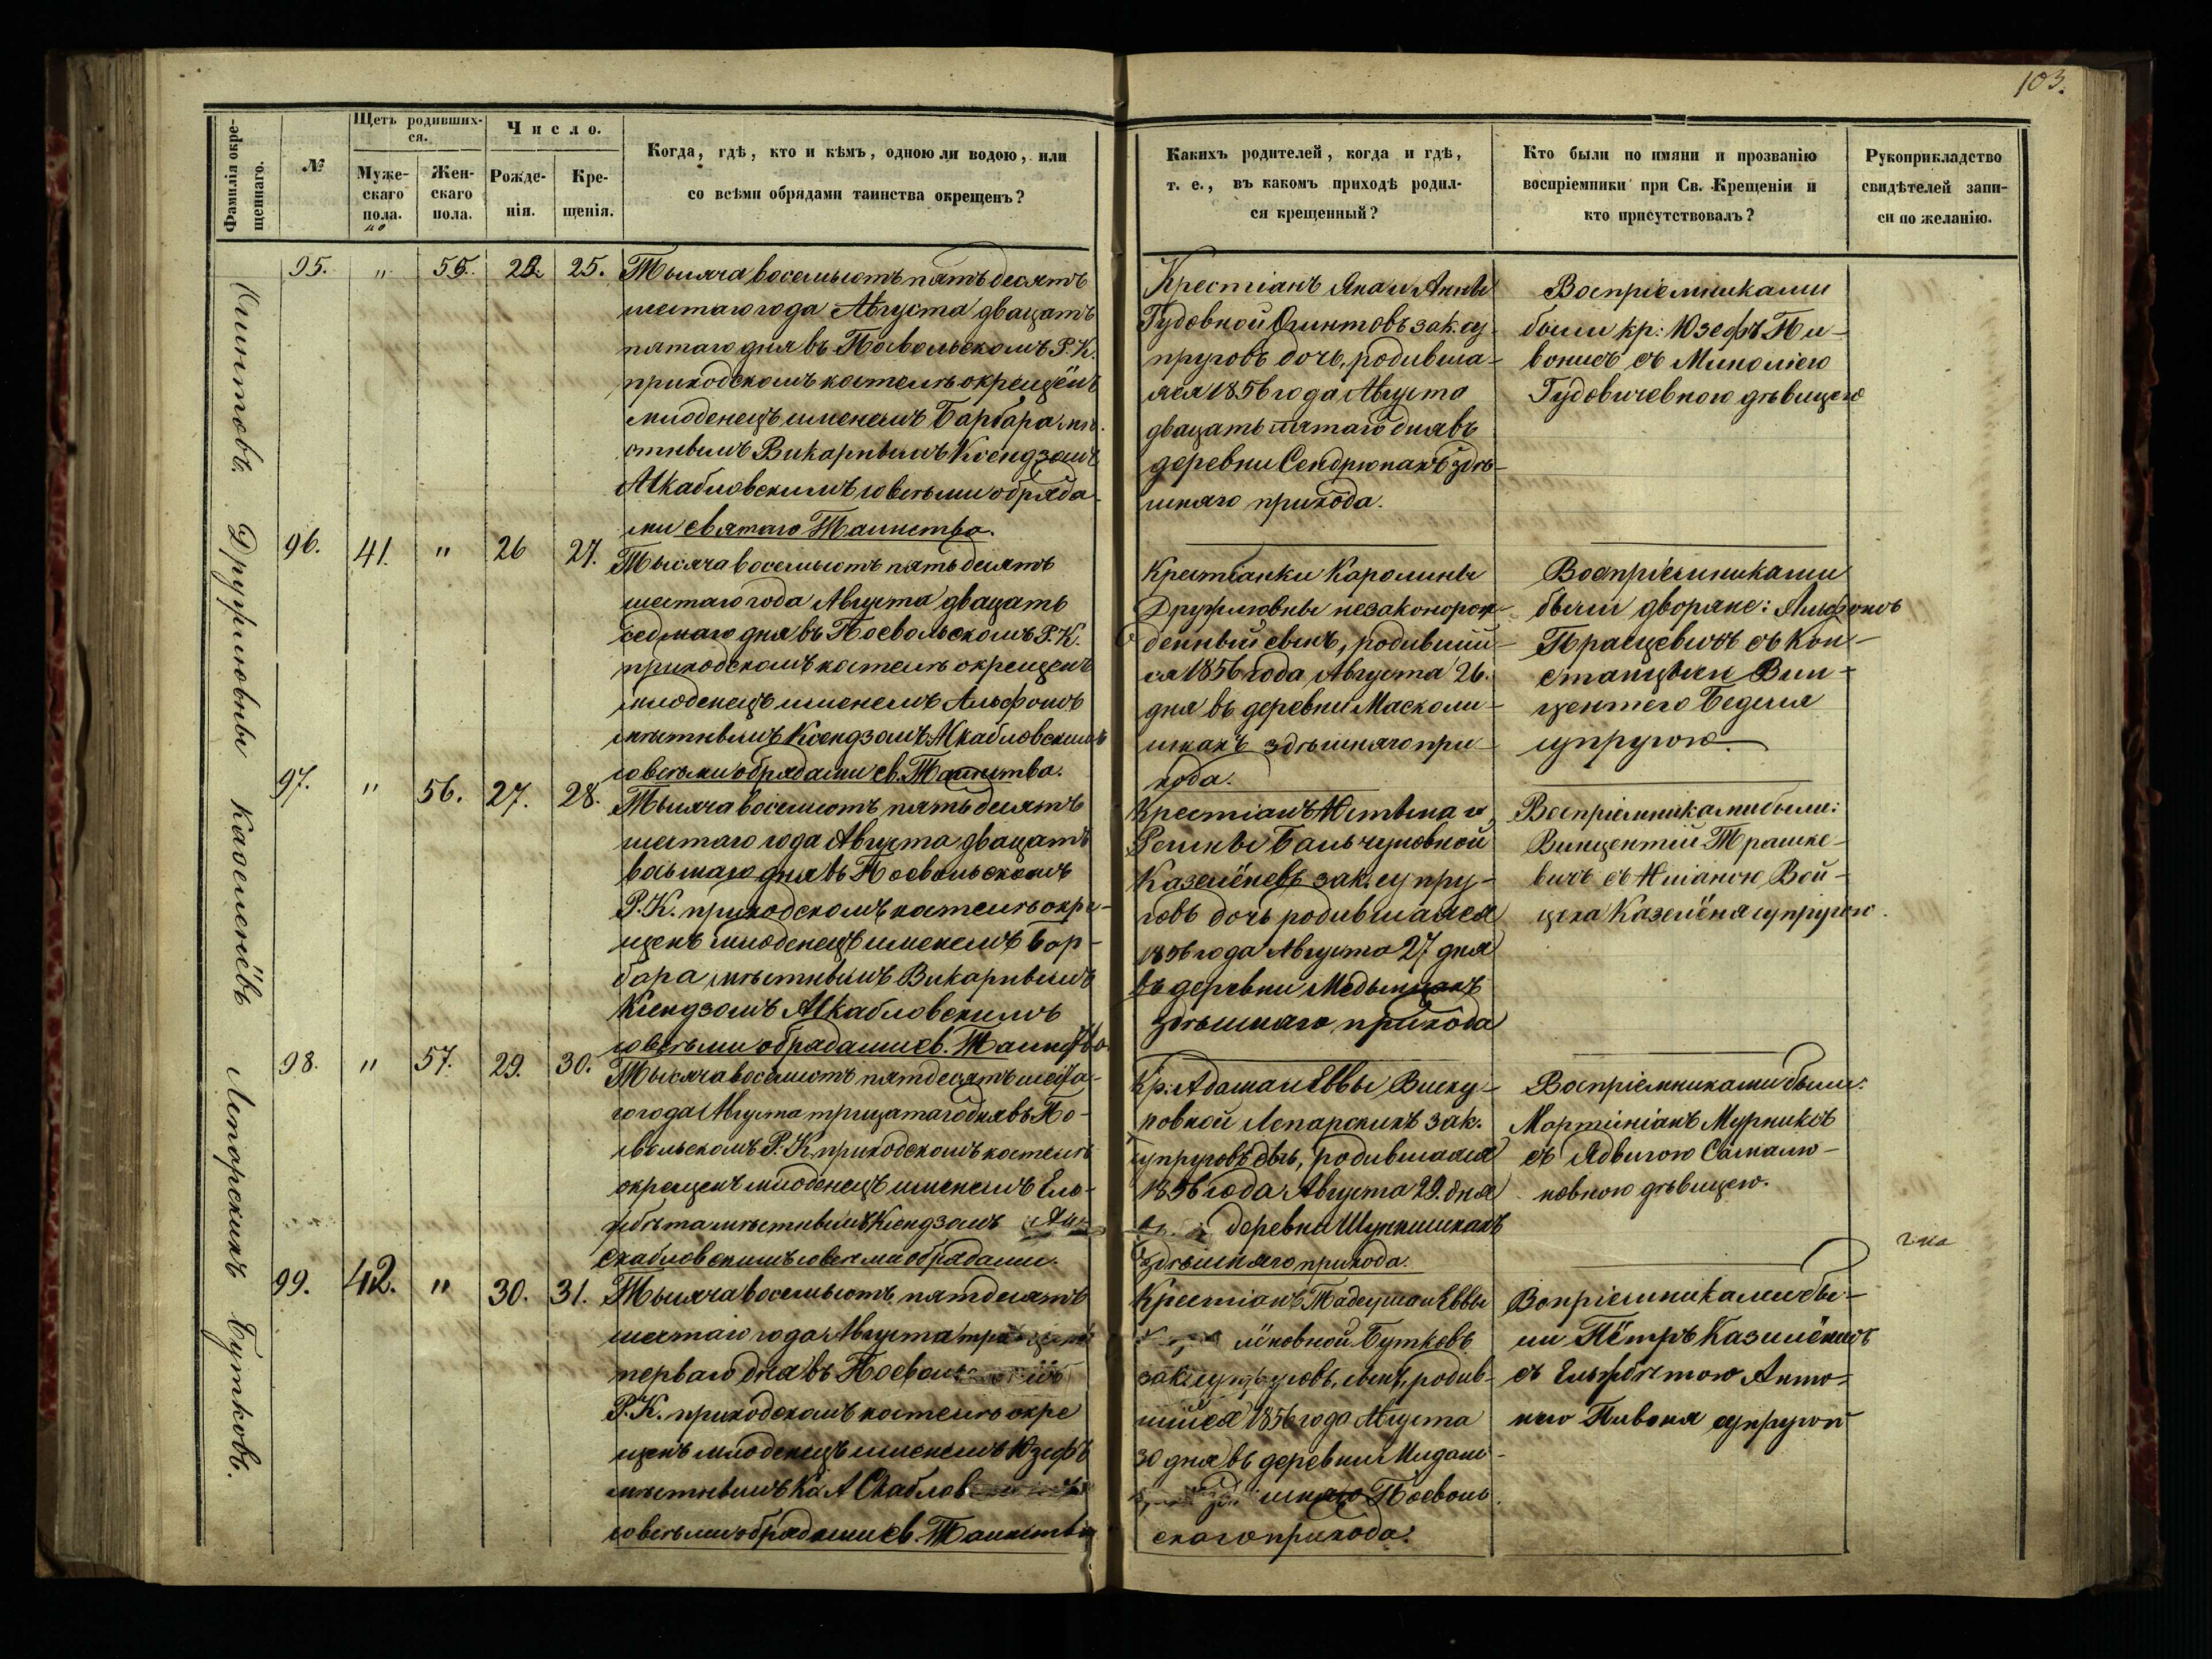 103.
Фамилія окре-
щеннаго.
№
Щетъ родивших-
ся.
Муже-
скаго
пола.
Жен-
скаго
пола.
Число.
Рожде-
нія.
Кре-
щенія.
Когда, гдѣ, кто и кѣмъ, одною ли водою, или
со всѣми обрядами таинства окрещенъ?
Какихъ родителей, когда и гдѣ,
т. е., въ какомъ приходѣ родил-
ся крещенный?
Кто были по имяни и прозванію
воспріемники при Св. Крещеніи и
кто присутствовалъ?
Рукоприкладство
свидѣтелей запи-
си по желанію.
95. " 55. 22. 25.
Тысяча восемьсотъ пятьдесятъ
шестаго года Августа двацать
пятаго дня въ Посвольскомъ Р. К.
приходскомъ костелѣ окрещёнъ
младенецъ именемъ Барбара мѣ-
стнымъ Викарнымъ Ксендзомъ
со всѣми обряда-
ми святаго Таинства.
Крестіанъ Яна и Анны
Гудовной зак. су-
пруговъ дочь, родивша-
яся 1856 года Августа
двацать пятаго дня въ
деревни здѣ-
шняго прихода.
Воспріемниками
были кр: Юзефъ Пи-
вонисъ съ
Гудовичевною дѣвицею
96. 41. " 26 27.
Тысяча восемьсотъ пятьдесятъ
шестаго года Августа двацать
седмаго дня въ Посвольскомъ Р. К.
приходскомъ костелѣ окрещенъ
младенецъ именемъ Альфонсъ
мѣстнымъ Ксендзомъ
со всѣми обрядами св. Таинства.
Крестіанки Каролины
незаконорож-
денный сынъ, родившій-
ся 1856 года Августа 26.
дня въ деревни Масколи-
шкахъ здѣшняго при-
хода.
Воспріемниками
были дворяне: Альфонсъ
съ Кон-
станціею Вин-
центего
супругою.
97. " 56. 27. 28.
Тысяча восемьсотъ пятьдесятъ
шестаго года Августа двацать
восьмаго дня въ Посвольскомъ
Р. К. приходскомъ костелѣ окре-
щенъ младенецъ именемъ Бар-
бара мѣстнымъ Викарнымъ
Ксендзомъ
со всѣми обрядами св. Таинства
Крестіанъ и
Казелёневъ зак. супру-
говъ дочь родившаяся
1856 года Августа 27 дня
въ деревни
здѣшняго прихода
Воспріемниками были:
Винцентій Трашке-
вичъ съ Вой-
цеха Казелёня супругою.
98. " 57. 29. 30.
Тысяча восемьсотъ пятдесятъ шеста-
го года Августа трицатаго дня въ По-
свольскомъ Р. К. приходскомъ костелѣ
окрещенъ младенецъ именемъ Ель-
жбѣта мѣстнымъ Ксендзомъ
со всѣма обрядами.
Кр: Адама и Еввы
Лепарскихъ зак.
супруговъ дочь, родившаяся
1856 года Августа 29. дня
деревни
здѣшняго прихода.
Воспріемниками были:
Мартініанъ Мурниксъ
съ Ядвигою
дѣвицею.
99. 42. " 30. 31.
Тысяча восемьсотъ пятдесятъ
шестаго года Августа
перваго дня въ
Р. К. приходскомъ костелѣ окре
щенъ младенецъ именемъ Юзефъ
мѣстнымъ
со всѣми обрядами св. Таинства
Крестіанъ Тадеуша и Еввы
Бутковъ
зак: супруговъ, сынъ, родив-
шійся 1856 года Августа
30 дня въ деревни
Посволь-
скаго прихода.
Вопріемниками бы-
ли Пётръ
съ Ельжбѣтою Анто-
него Пивоня супругой
Друтлювны
Казеленёвъ
Лепарскихъ
Бутковъ.